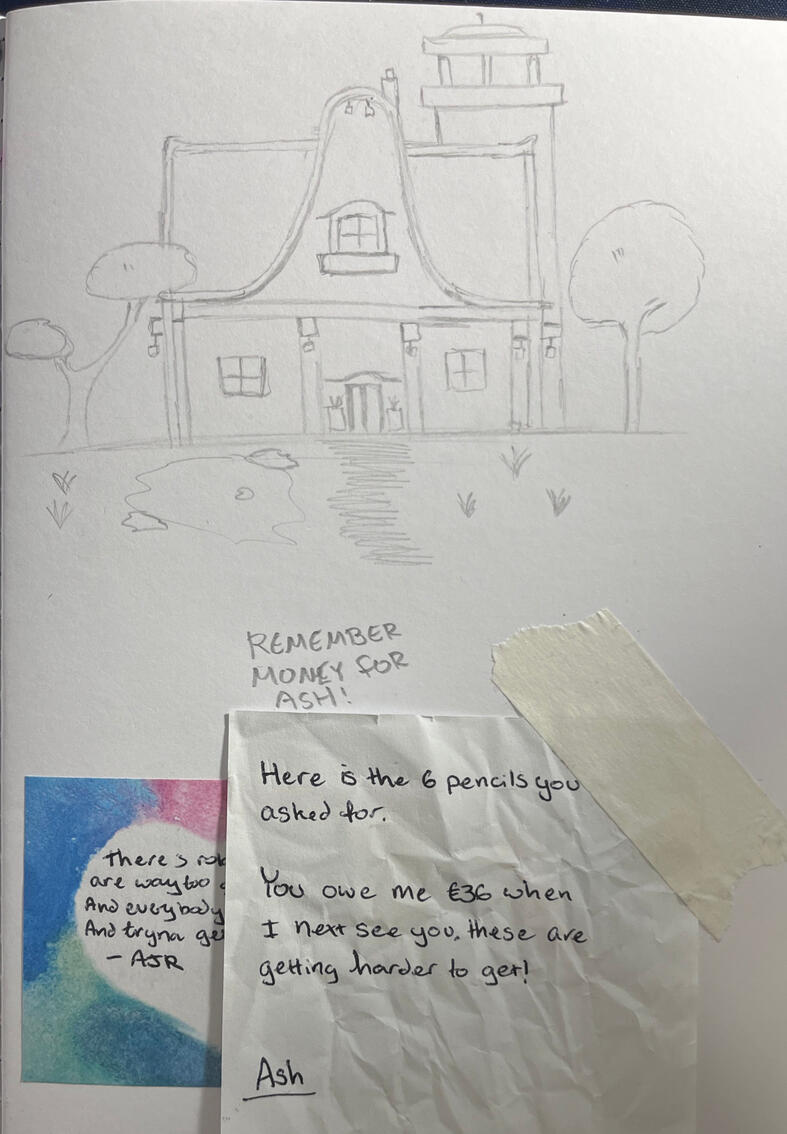 REMEMBER
MONEY FOR
ASH!
Here is the 6 pencils you
asked for.
You owe me €36 when
I next see you, these are
getting harder to get!
Ash
There's
are way too
And everybody
And tryna
- AJR